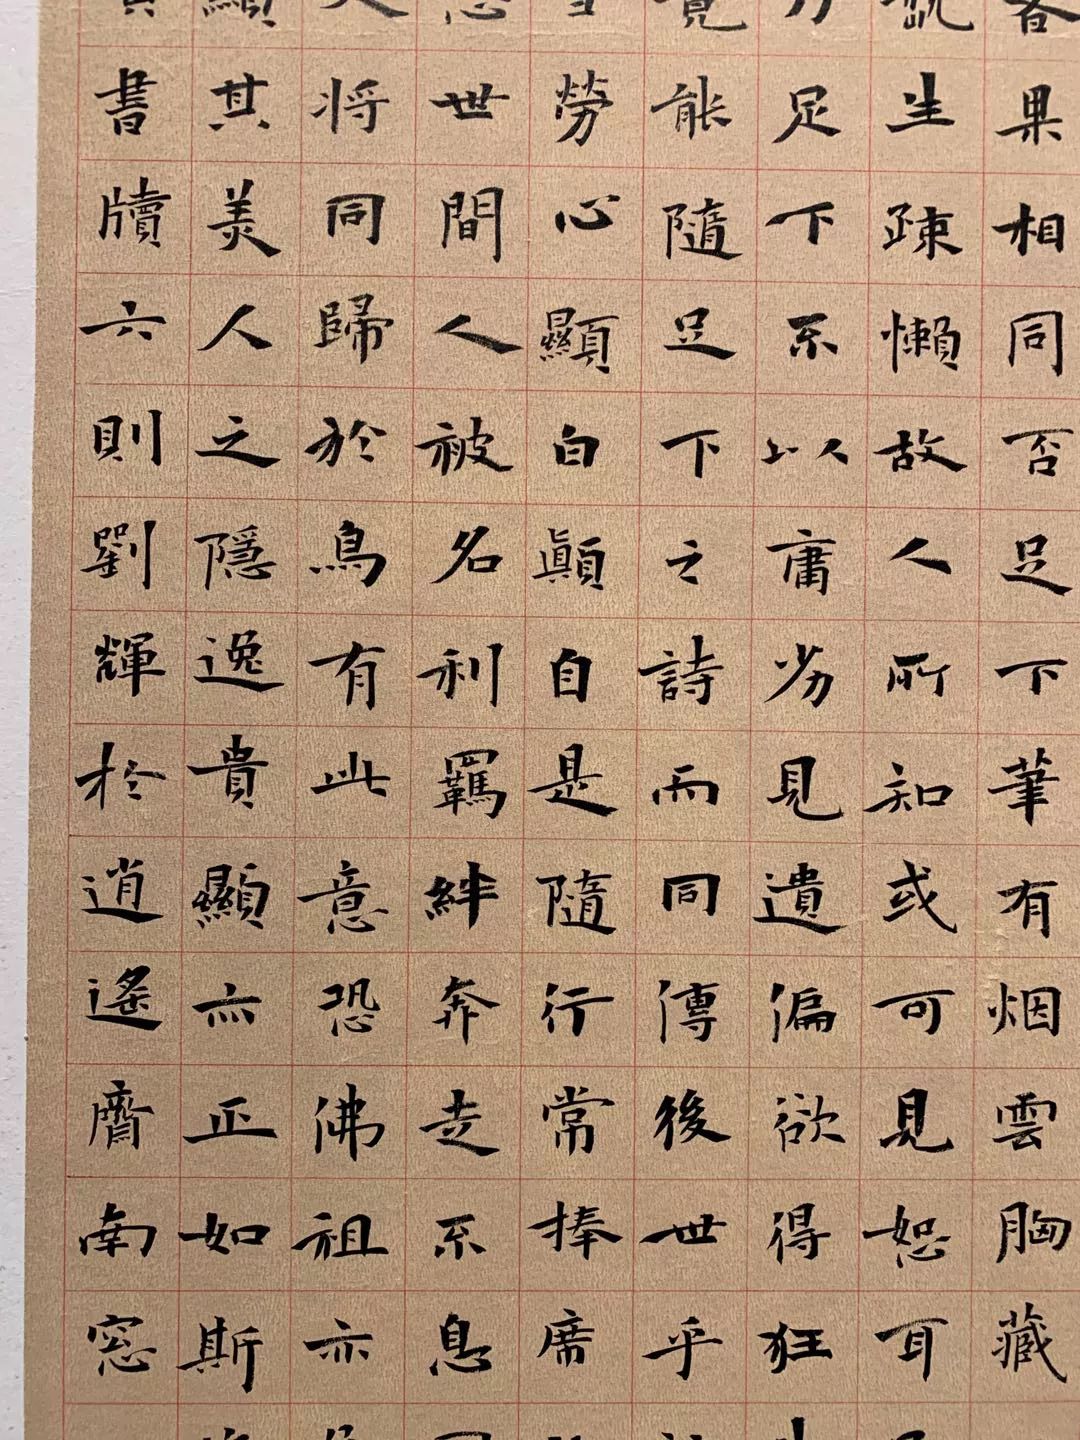 果相同否足下筆有烟雲胸藏
生疎懶故人所知或可見恕耳
足下不以庸劣見遺偏欲得狂
能隨足下之詩而同傳後世乎
勞心顯白顛自是隨行常捧席
世間人被名利羈絆奔走不息
将同歸於鳥有此意恐佛祖亦
其美人之隱逸貴顯亦正如斯
書牘六則劉輝於逍遙齋南窓